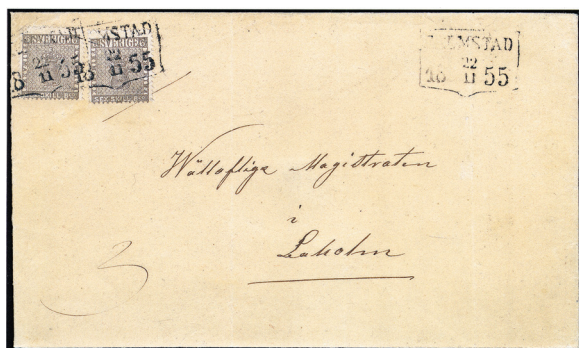 SVERIGE
SVERIGE
MSTAD
22
18 11 55
MSTAD
22
18 11 55
22
18 11 55
Wällofliga Magistraten
i
Laholm
3